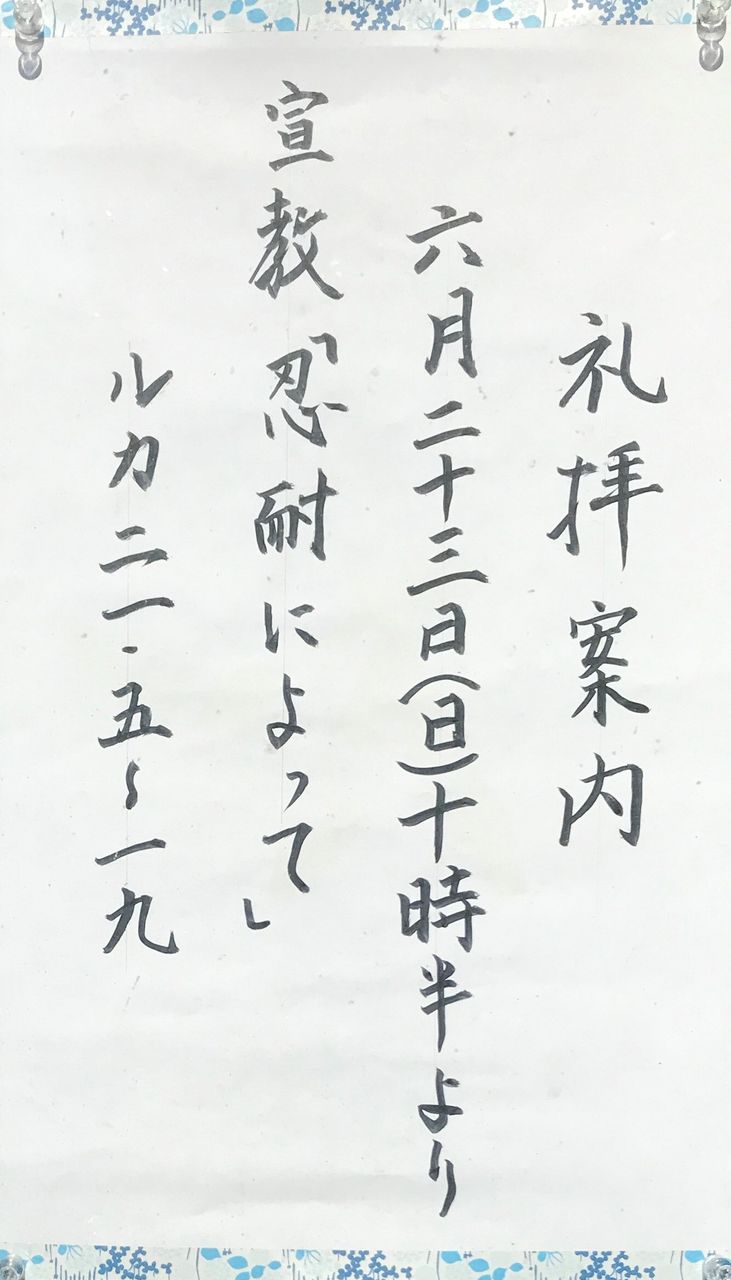 礼拝案内
六月二十三日(日)十時半より
宣教「忍耐によって」
ルカ二一・五～一九